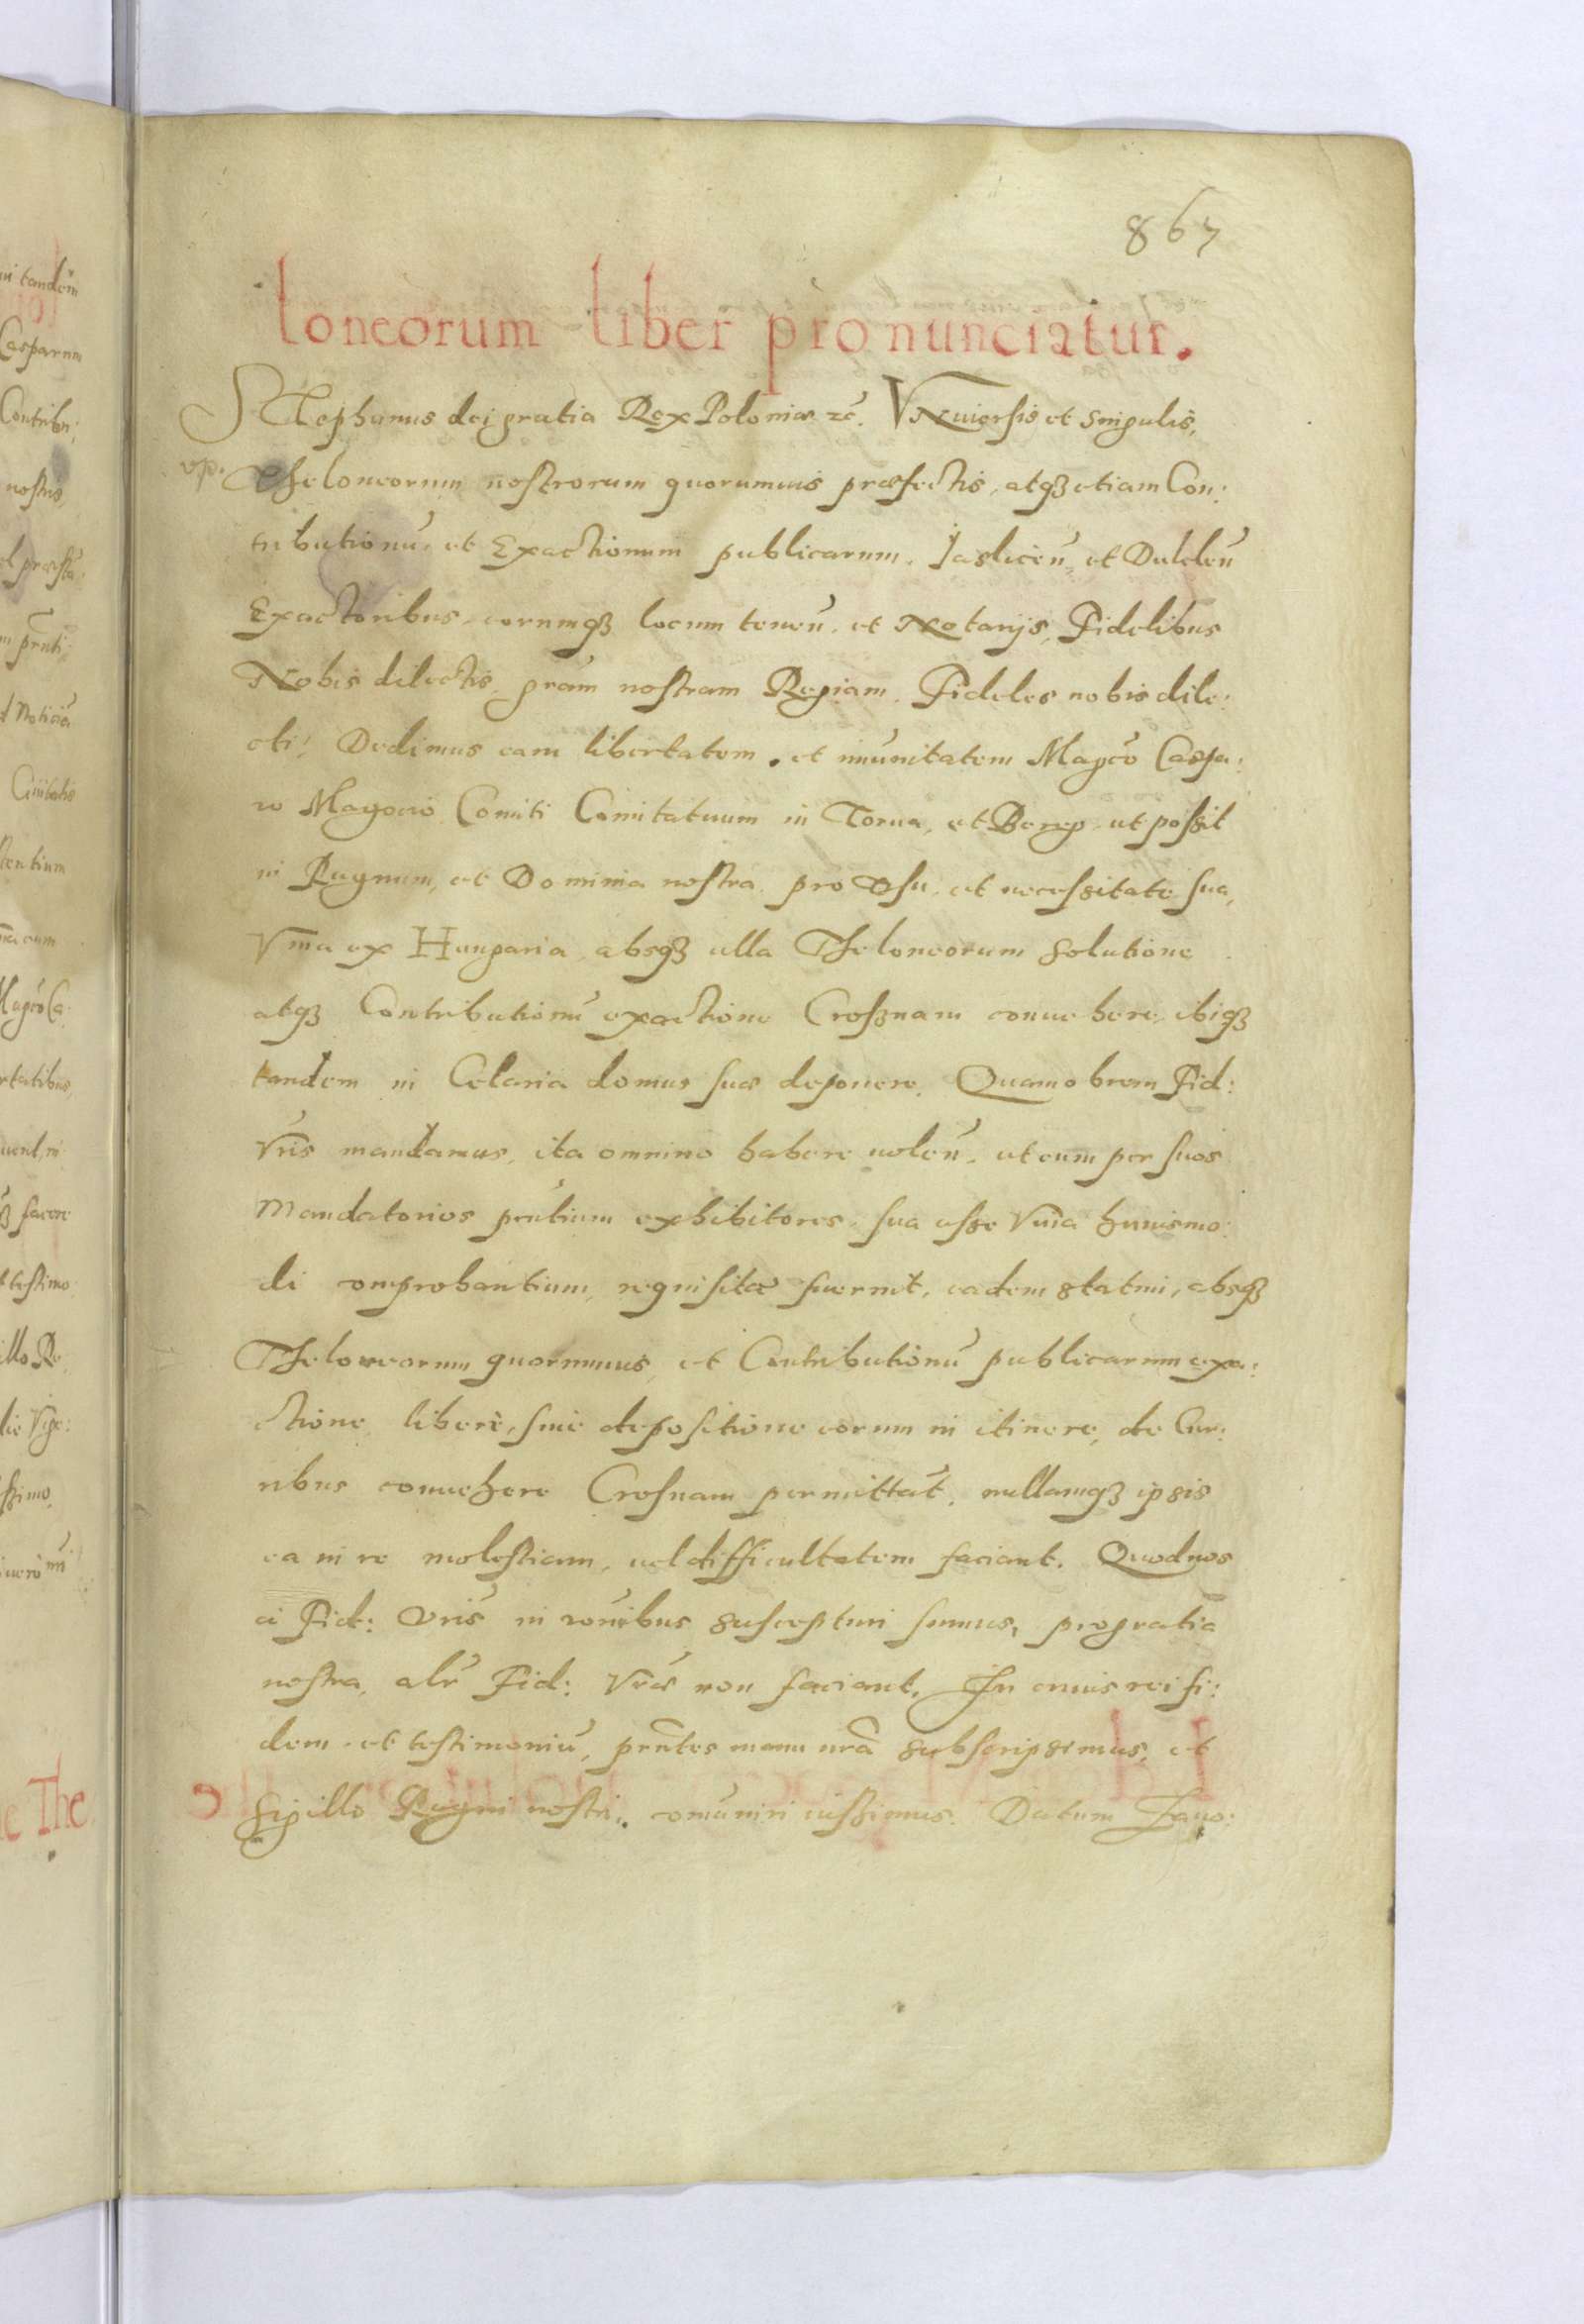 867
loneorum liber pronunciatur.
Stephanus dei gratia Rex Poloniæ etc. Vniuersis et singulis,
Theloneorum nostrorum quorumuis præfectis, atqꝫ etiam Con:
tributionū et Exactionum publicarum, Jasliceñ et Dukleñ
Exactoribus, eorumqꝫ locum teneñ. et Notarijs, Fidelibus
Nobis dilectis, gram̄ nostram Regiam. Fideles nobis dile:
cti! Dedimus eam libertatem. et im̄unitatem Magco Caspa:
ro Magocio Comiti Comitatuum in Torna, et Bereg, ut possit
in Regnum, et Dominia nostra, pro vsu et necessitate sua,
Vina ex Hungaria, absqꝫ ulla Theloneorum solutione
atqꝫ Contributionū exactione Crosznam conuehere, ibiqꝫ
tandem in Celaria domus suæ deponere. Quamobrem Fid:
Vris mandamus, ita omnino habere uoleñ. ut cum per suos
Mandatorios pñtium exhibitores, sua esse Vina huiusmo:
di comprobantium, requisitæ fuerint, eadem statim, absqꝫ
Theloneorum quorumuis, et Contributionū publicarum exa:
ctione, liberè, sine depositione eorum in itinere, de Cur:
ribus conuehere Crosnam permittāt, nullamqꝫ ipsis
ea in re molestiam, uel difficultatem faciant. Quod nos
a Fid: Vris in rōnibus suscepturi sumus, pro gratia
nostra, alr̄ Fid: Vræ non faciant. In cuius rei fi:
dem et testimoniū, pñtes manu nrā subscripsimus, et
Sigillo Regni nostri. comuniri iussimus. Datum Jauo:
ni tandem
Casparum
Contribu:
nostris,
Ciuitatis
Magco Ca:
facere
testimo
illo Re
die Vige:
ssimo
e The